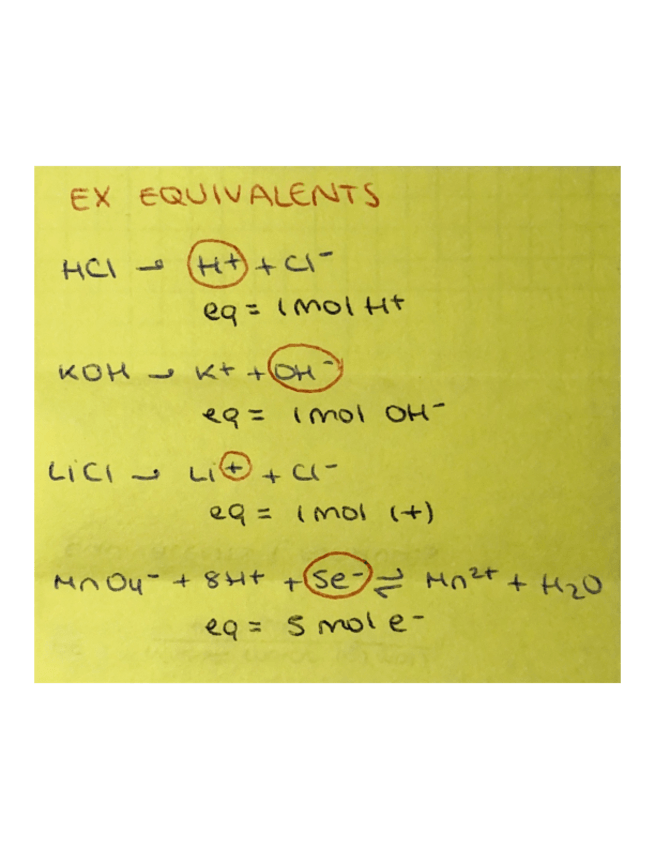 EX EQUIVALENTS
HCl → H+ + Cl⁻
eq = 1 mol H+
KOH → K+ + OH⁻
eq = 1 mol OH⁻
LiCl → Li+ + Cl⁻
eq = 1 mol (+)
MnO₄⁻ + 8H+ + 5e⁻ ⇌ Mn²⁺ + H₂O
eq = 5 mol e⁻